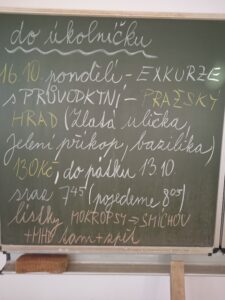 do úkolníčku
16.10. pondělí - EXKURZE
s PRŮVODKYNÍ - PRAŽSKÝ
HRAD (Zlatá ulička,
Jelení příkop, bazilika)
130Kč, do pátku 13.10.
sraz 7⁴⁵ (pojedeme 8⁰³)
lístky MOKROPSY ⇒ SMÍCHOV
+MHD tam+zpět